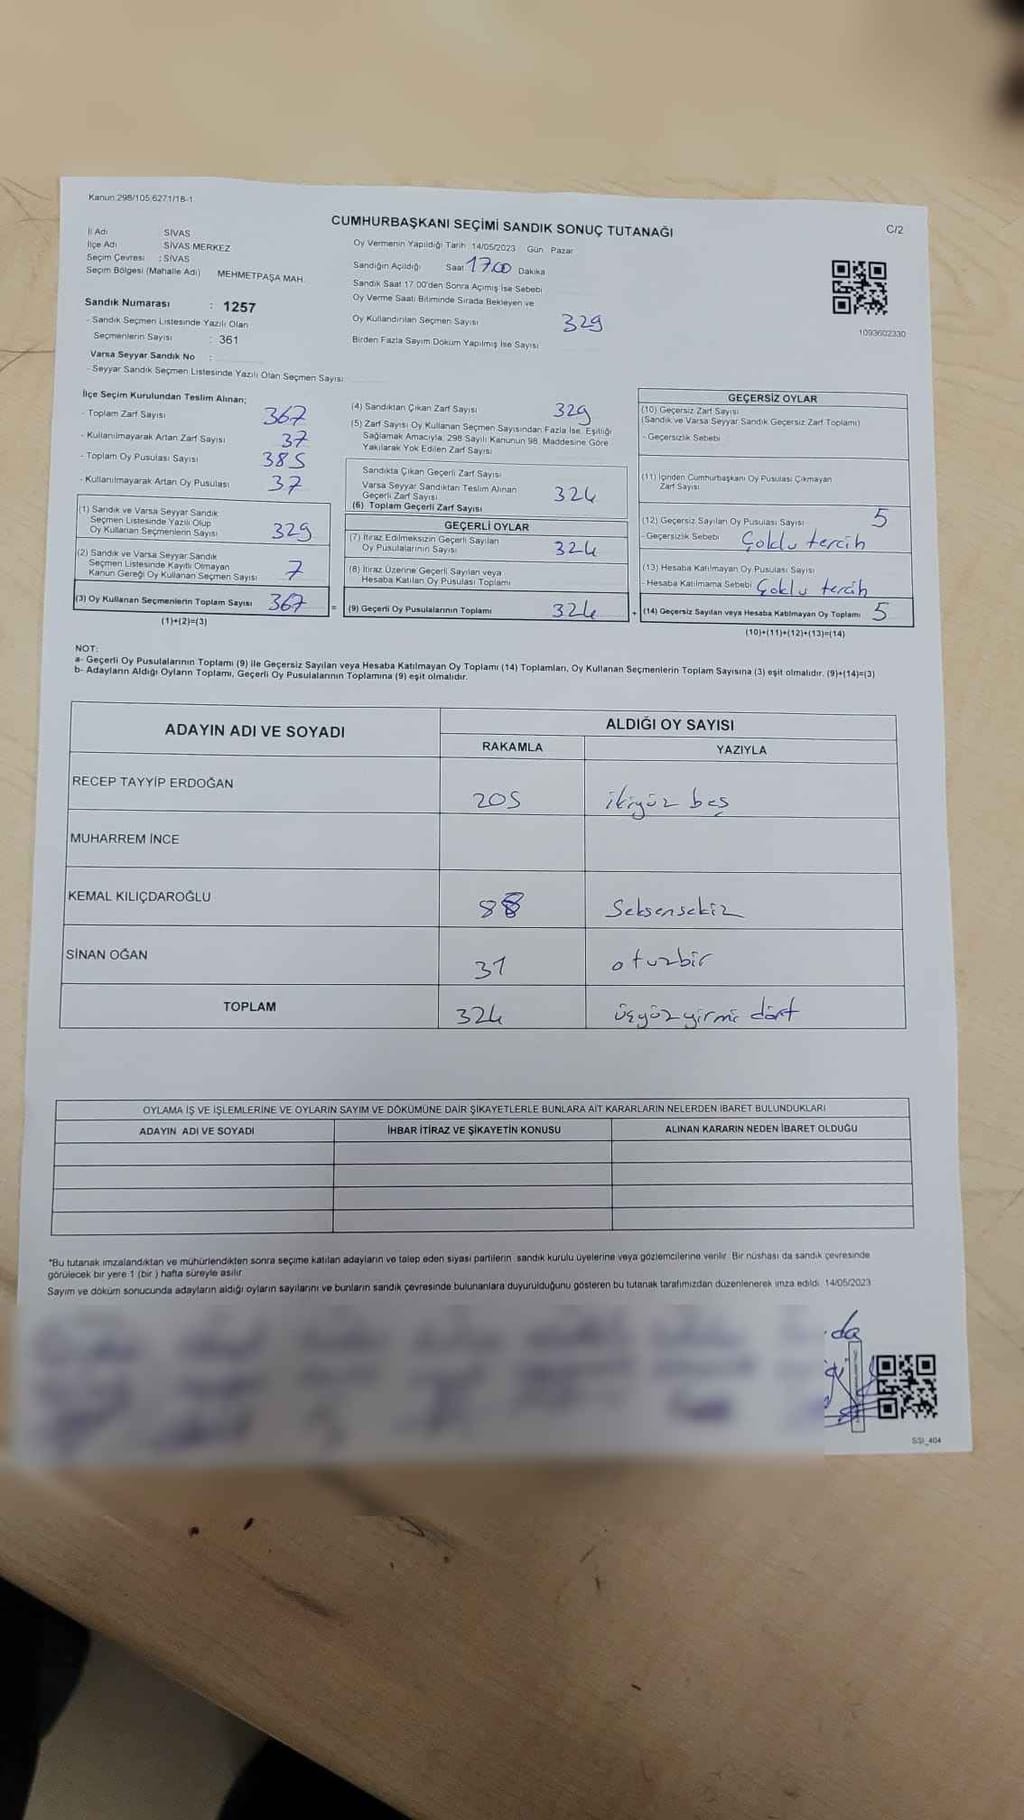 Kanun.298/105,6271/18-1
CUMHURBAŞKANI SEÇİMİ SANDIK SONUÇ TUTANAĞI
C/2
İl Adı SİVAS
İlçe Adı SİVAS MERKEZ
Seçim Çevresi : SİVAS
Seçim Bölgesi (Mahalle Adı) MEHMETPAŞA MAH.
Sandık Numarası : 1257
- Sandık Seçmen Listesinde Yazılı Olan
Seçmenlerin Sayısı : 361
Varsa Seyyar Sandık No :
- Seyyar Sandık Seçmen Listesinde Yazılı Olan Seçmen Sayısı:
Oy Vermenin Yapıldığı Tarih :14/05/2023 Gün: Pazar
Sandığın Açıldığı Saat 17.00 Dakika
Sandık Saat 17:00'den Sonra Açımış İse Sebebi
Oy Verme Saati Bitiminde Sırada Bekleyen ve
Oy Kullandırılan Seçmen Sayısı 329
Birden Fazla Sayım Döküm Yapılmış İse Sayısı
1093602330
İlçe Seçim Kurulundan Teslim Alınan;
- Toplam Zarf Sayısı 367
- Kullanılmayarak Artan Zarf Sayısı 37
- Toplam Oy Pusulası Sayısı 385
- Kullanılmayarak Artan Oy Pusulası 37
(1) Sandık ve Varsa Seyyar Sandık
Seçmen Listesinde Yazılı Olup
Oy Kullanan Seçmenlerin Sayısı 329
(2) Sandık ve Varsa Seyyar Sandık
Seçmen Listesinde Kayıtlı Olmayan
Kanun Gereği Oy Kullanan Seçmen Sayısı 7
(3) Oy Kullanan Seçmenlerin Toplam Sayısı 367
(1)+(2)=(3)
=
(4) Sandıktan Çıkan Zarf Sayısı 329
(5) Zarf Sayısı Oy Kullanan Seçmen Sayısından Fazla İse, Eşitliği
Sağlamak Amacıyla; 298 Sayılı Kanunun 98. Maddesine Göre
Yakılarak Yok Edilen Zarf Sayısı
Sandıkta Çıkan Geçerli Zarf Sayısı
Varsa Seyyar Sandıktan Teslim Alınan
Geçerli Zarf Sayısı 324
(6) Toplam Geçerli Zarf Sayısı
GEÇERLİ OYLAR
(7) İtiraz Edilmeksizin Geçerli Sayılan
Oy Pusulalarının Sayısı 324
(8) İtiraz Üzerine Geçerli Sayılan veya
Hesaba Katılan Oy Pusulası Toplamı
(9) Geçerli Oy Pusulalarının Toplamı 324
+
GEÇERSİZ OYLAR
(10) Geçersiz Zarf Sayısı
(Sandık ve Varsa Seyyar Sandık Geçersiz Zarf Toplamı)
- Geçersizlik Sebebi
(11) İçinden Cumhurbaşkanı Oy Pusulası Çıkmayan
Zarf Sayısı
(12) Geçersiz Sayılan Oy Pusulası Sayısı 5
- Geçersizlik Sebebi Çoklu tercih
(13) Hesaba Katılmayan Oy Pusulası Sayısı
- Hesaba Katılmama Sebebi Çoklu tercih
(14) Geçersiz Sayılan veya Hesaba Katılmayan Oy Toplamı 5
(10)+(11)+(12)+(13)=(14)
NOT:
a- Geçerli Oy Pusulalarının Toplamı (9) ile Geçersiz Sayılan veya Hesaba Katılmayan Oy Toplamı (14) Toplamları, Oy Kullanan Seçmenlerin Toplam Sayısına (3) eşit olmalıdır. (9)+(14)=(3)
b- Adayların Aldığı Oyların Toplamı, Geçerli Oy Pusulalarının Toplamına (9) eşit olmalıdır.
ADAYIN ADI VE SOYADI
ALDIĞI OY SAYISI
RAKAMLA YAZIYLA
RECEP TAYYİP ERDOĞAN 205 ikiyüz beş
MUHARREM İNCE
KEMAL KILIÇDAROĞLU 88 Seksensekiz
SİNAN OĞAN 31 otuzbir
TOPLAM 324 üçyüz yirmi dört
OYLAMA İŞ VE İŞLEMLERİNE VE OYLARIN SAYIM VE DÖKÜMÜNE DAİR ŞİKAYETLERLE BUNLARA AİT KARARLARIN NELERDEN İBARET BULUNDUKLARI
ADAYIN ADI VE SOYADI İHBAR İTİRAZ VE ŞİKAYETİN KONUSU ALINAN KARARIN NEDEN İBARET OLDUĞU
*Bu tutanak imzalandıktan ve mühürlendikten sonra seçime katılan adayların ve talep eden siyasi partilerin sandık kurulu üyelerine veya gözlemcilerine verilir. Bir nüshası da sandık çevresinde
görülecek bir yere 1 (bir ) hafta süreyle asılır.
Sayım ve döküm sonucunda adayların aldığı oyların sayılarını ve bunların sandık çevresinde bulunanlara duyurulduğunu gösteren bu tutanak tarafımızdan düzenlenerek imza edildi. 14/05/2023
da
SSI_404